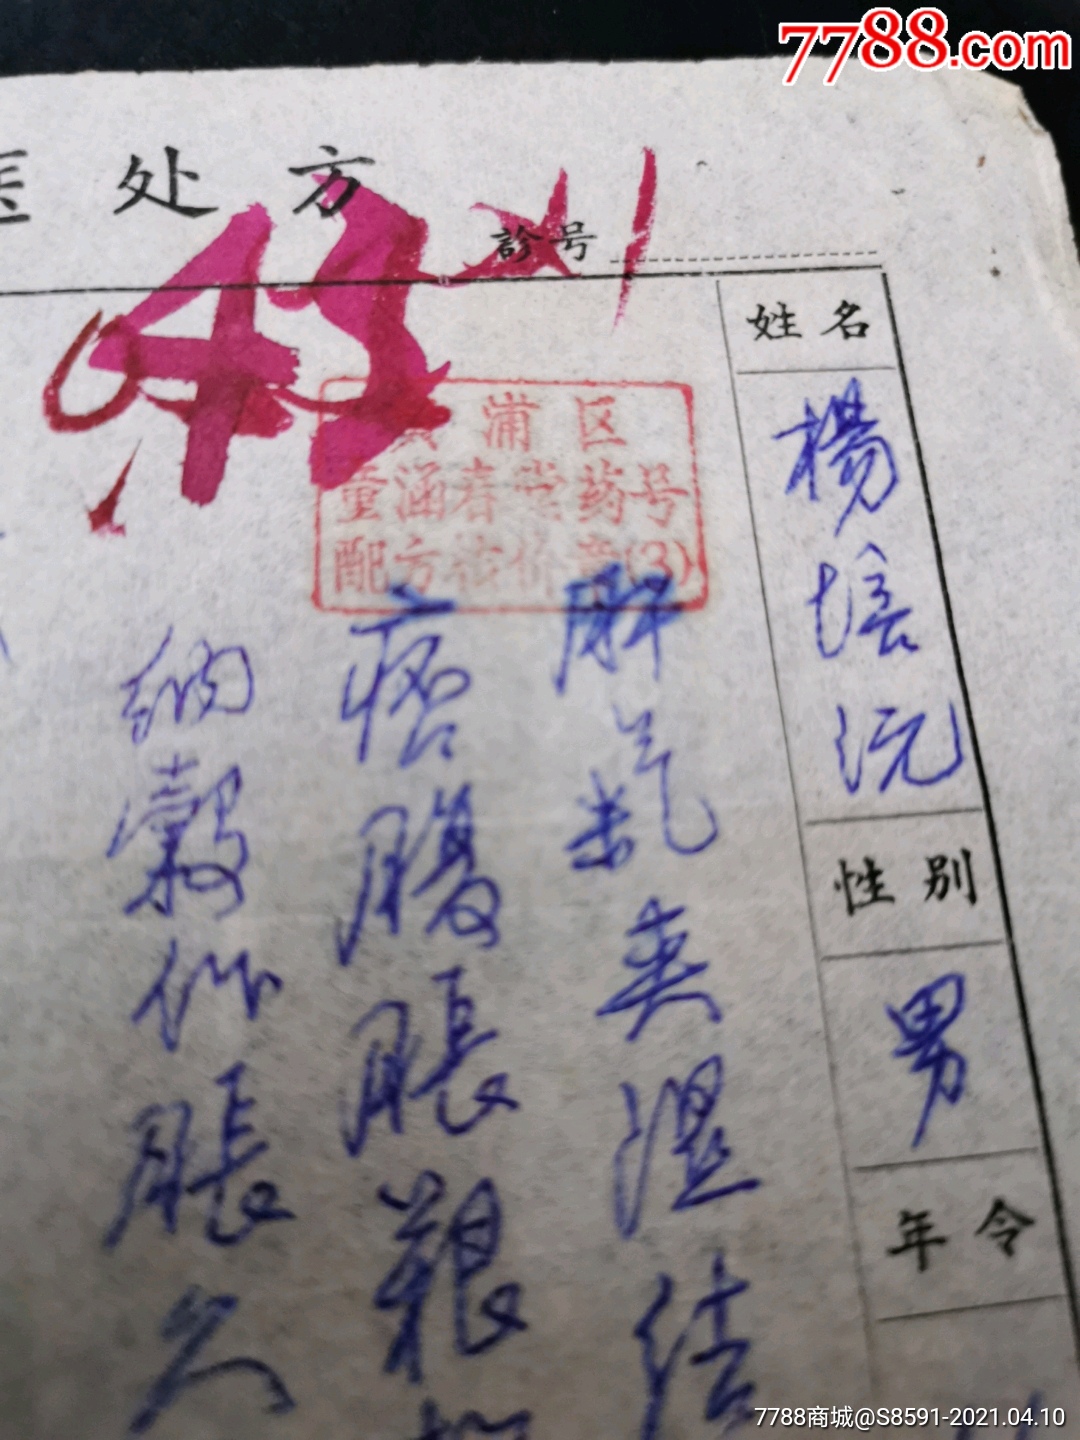 7788.com
医处方
診号
姓名
楊培沅
性别
男
年令
黄浦区
童涵春堂药号
配方估价章(3)
肝气夹湿结
痞腹脹艰
納穀作脹久
7788商城@S8591-2021.04.10